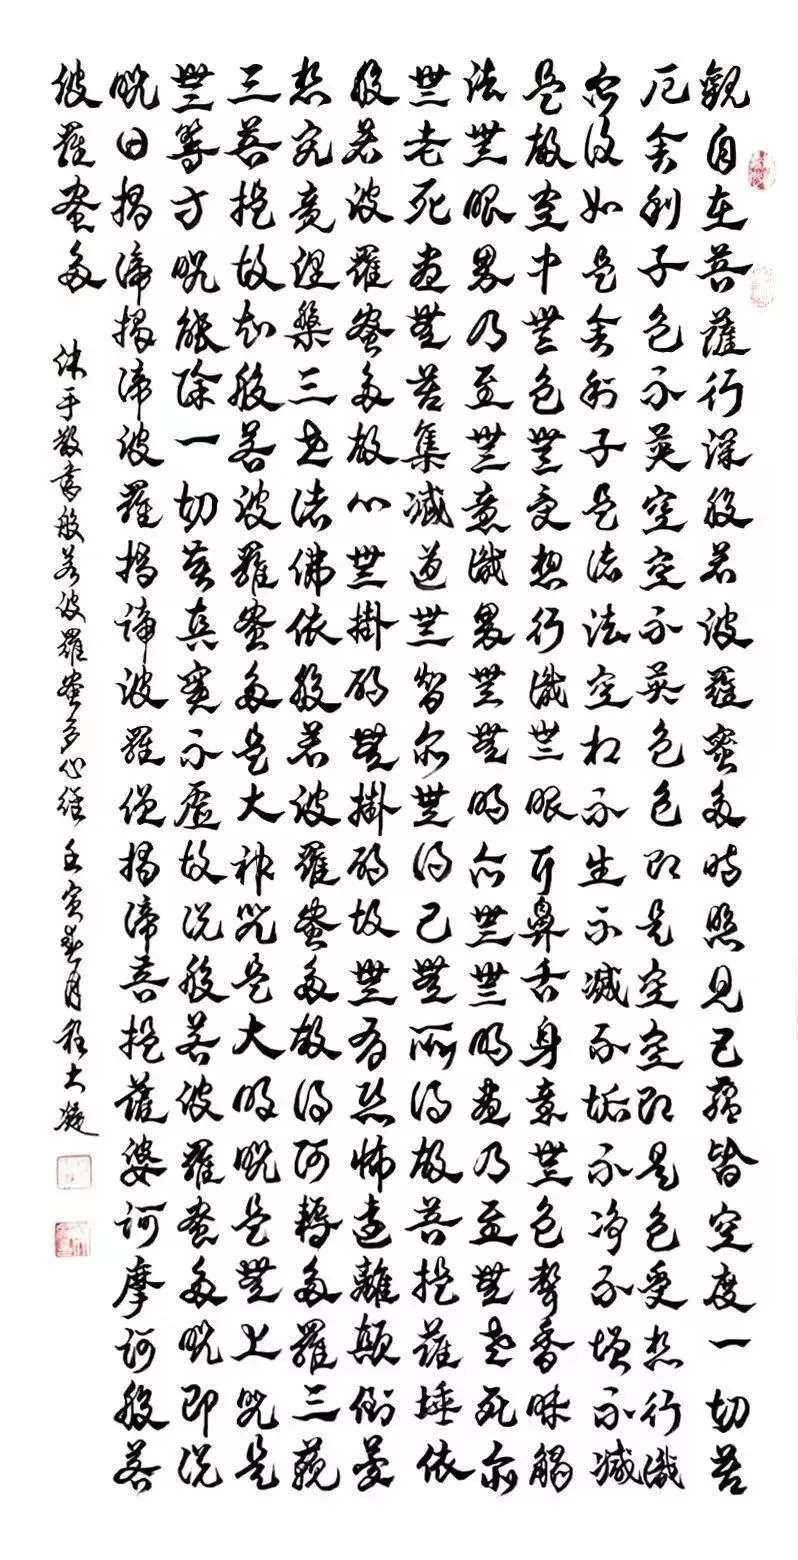 觀自在菩薩行深般若波羅蜜多時照見五蘊皆空度一切苦
厄舍利子色不異空空不異色色即是空空即是色受想行識
亦復如是舍利子是諸法空相不生不滅不垢不淨不增不減
是故空中無色無受想行識無眼耳鼻舌身意無色聲香味觸
法無眼界乃至無意識界無無明亦無無明盡乃至無老死亦
無老死盡無苦集滅道無智亦無得已無所得故菩提薩埵依
般若波羅蜜多故心無掛礙無掛礙故無有恐怖遠離顛倒夢
想究竟涅槃三世諸佛依般若波羅蜜多故得阿耨多羅三藐
三菩提故知般若波羅蜜多是大神咒是大明咒是無上咒是
無等等咒能除一切苦真實不虛故說般若波羅蜜多咒即說
咒曰揭諦揭諦波羅揭諦波羅僧揭諦菩提薩婆訶摩訶般若
波羅蜜多
沐手敬書般若波羅蜜多心經 壬寅春月程大